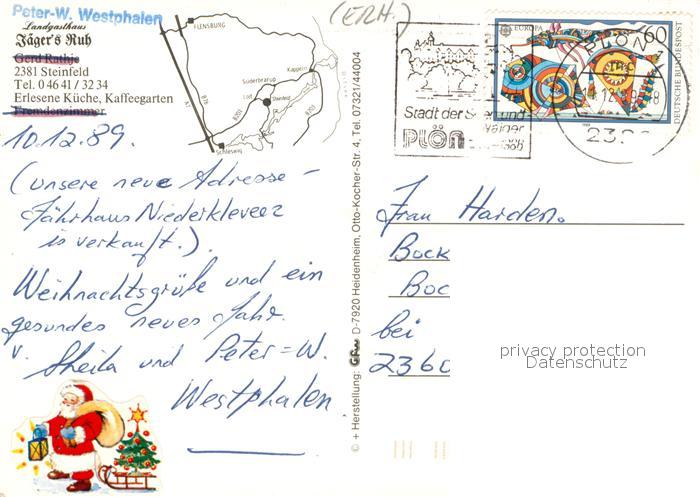 Peter-W. Westphalen
Landgasthaus
Jäger's Ruh
Gerd Rathje
2381 Steinfeld
Tel. 0 46 41 / 32 34
Erlesene Küche, Kaffeegarten
Fremdenzimmer
FLENSBURG
Kappeln
Süderbrarup
Loit
Steinfeld
B76
B201
B201
A7
Schleswig
(ERH.)
10.12.89.
(unsere neue Adresse –
Fährhaus Niederkleveez
is verkauft.).
Weihnachtsgrüße und ein
gesundes neues Jahr.
v. Sheila und Peter=W.
Westphalen
© + Herstellung: D-7920 Heidenheim, Otto-Kocher-Str. 4, Tel. 07321/44004
Stadt der Seen und
PLÖN
EUROPA
60
DEUTSCHE BUNDESPOST
PLÖN
Frau Harden.
Bock
Boc
bei
236
privacy protection
Datenschutz